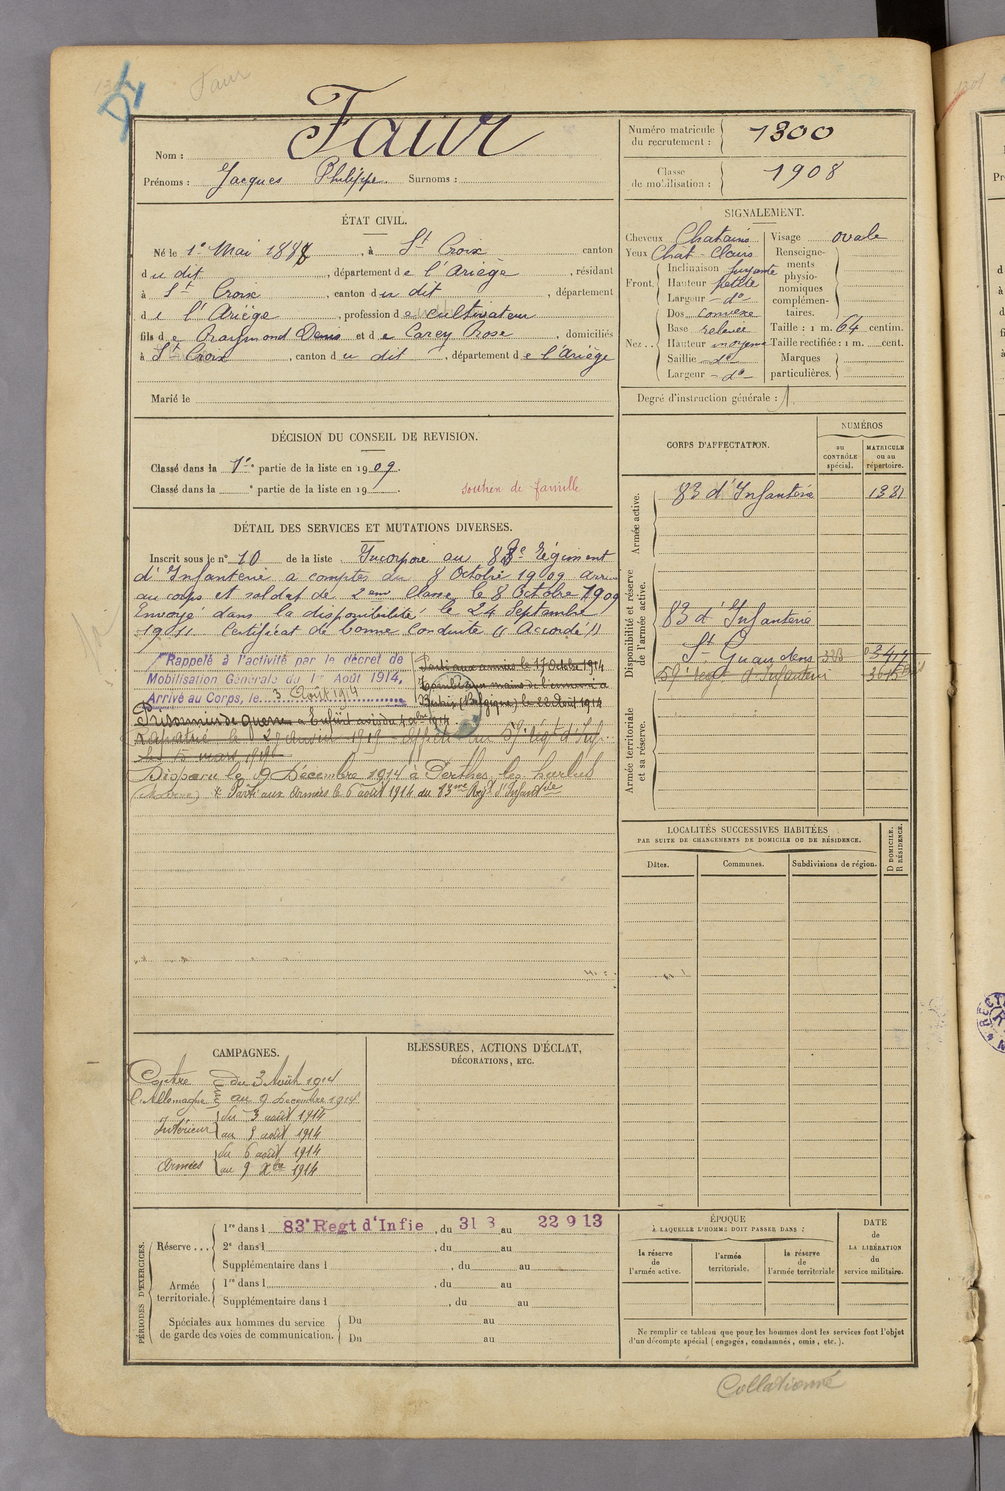 Faur
Nom : Faur
Prénoms : Jacques Philippe Surnoms :
Numéro matricule du recrutement : 1300
Classe de mobilisation : 1908
ÉTAT CIVIL.
Né le 1er Mai 188 , à St Croix canton
du dit , département de l'Ariège , résidant
à St Croix , canton du dit , département
de l'Ariège , profession de cultivateur
fils de Raymond Denis et de Carey Rose domiciliés
à St Croix , canton du dit , département de l'Ariège
Marié le
SIGNALEMENT.
Cheveux Chatains
Yeux Chat-Clairs
Front Inclinaison fuyante
Hauteur petite
Largeur - do -
Nez Dos convexe
Base relevée
Hauteur moyenne
Saillie do
Largeur - do -
Visage ovale
Renseignements physionomiques complémentaires.
Taille : 1 m. 64 centim.
Taille rectifiée : 1 m. cent.
Marques particulières.
Degré d'instruction générale : 1
DÉCISION DU CONSEIL DE REVISION.
Classé dans la 1re partie de la liste en 1909.
Classé dans la e partie de la liste en 19 .
soutien de famille
DÉTAIL DES SERVICES ET MUTATIONS DIVERSES.
Inscrit sous le no 10 de la liste Incorporé au 83e Régiment
d'Infanterie à compter du 8 Octobre 1909 arrivé
au corps et soldat de 2eme Classe le 8 Octobre 1909
Envoyé dans la disponibilité le 24 Septembre
1911. Certificat de bonne Conduite "Accordé"
Rappelé à l'activité par le décret de
Mobilisation Générale du 1er Août 1914,
Arrivé au Corps, le 3 Août 1914
Parti aux armées le 17 Octobre 1914
Tombé aux mains de l'ennemi à
(Belgique) le 22 Août 1914
Prisonnier de guerre à
Rapatrié le 29 Janvier 1919 - affecté au 59e régt d'Inf.
le 15 mars 1919
Disparu le 9 Décembre 1914 à Perthes les hurlus
(Marne) Parti aux Armées le 6 août 1914 du 83me Regt d'Infanterie
CORPS D'AFFECTATION.
NUMÉROS
au CONTRÔLE spécial.
MATRICULE ou au répertoire.
Armée active.
83 d'Infanterie 1331
Disponibilité et réserve de l'armée active.
83 d'Infanterie
St Gaudens
59e rég. d'Infanterie
Armée territoriale et sa réserve.
LOCALITÉS SUCCESSIVES HABITÉES
PAR SUITE DE CHANGEMENTS DE DOMICILE OU DE RÉSIDENCE.
Dates. Communes. Subdivisions de région. D DOMICILE. R RÉSIDENCE.
CAMPAGNES.
Contre du 3 Août 1914
l'Allemagne au 9 Décembre 1914
Intérieur du 3 août 1914
au 5 août 1914
Armées du 6 août 1914
au 9 Xbre 1914
BLESSURES, ACTIONS D'ÉCLAT,
DÉCORATIONS, ETC.
PÉRIODES D'EXERCICES.
Réserve ... 1re dans l 83e Regt d'Infie , du 31 8 au 22 9 13
2e dans l , du au
Supplémentaire dans l , du au
Armée territoriale. 1re dans l , du au
Supplémentaire dans l , du au
Spéciales aux hommes du service de garde des voies de communication. Du au
Du au
ÉPOQUE
À LAQUELLE L'HOMME DOIT PASSER DANS :
la réserve de l'armée active.
l'armée territoriale.
la réserve de l'armée territoriale
DATE de LA LIBÉRATION du service militaire.
Ne remplir ce tableau que pour les hommes dont les services font l'objet
d'un décompte spécial (engagés, condamnés, omis, etc.).
Collationné